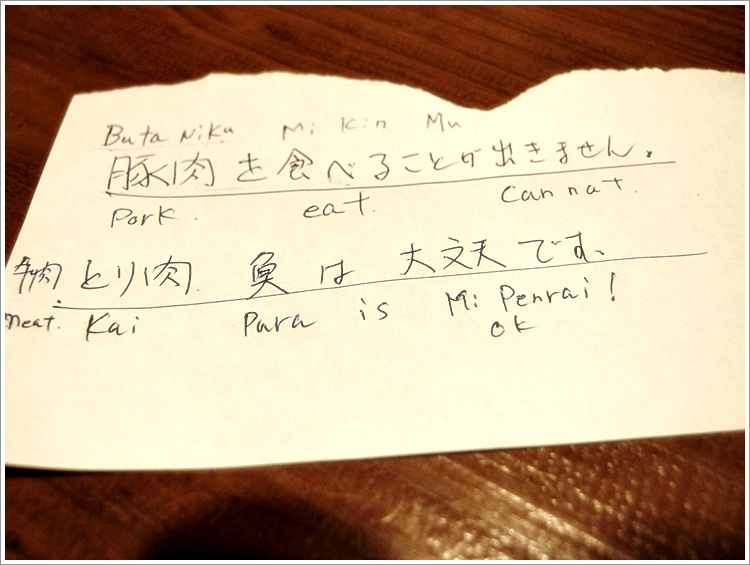 Buta Niku Mi Kin Mu
豚肉を食べることが出きません。
Pork. eat. Can nat.
牛肉 とり肉 魚は 大丈夫です、
meat. Kai Para is Mi Penrai!
ok